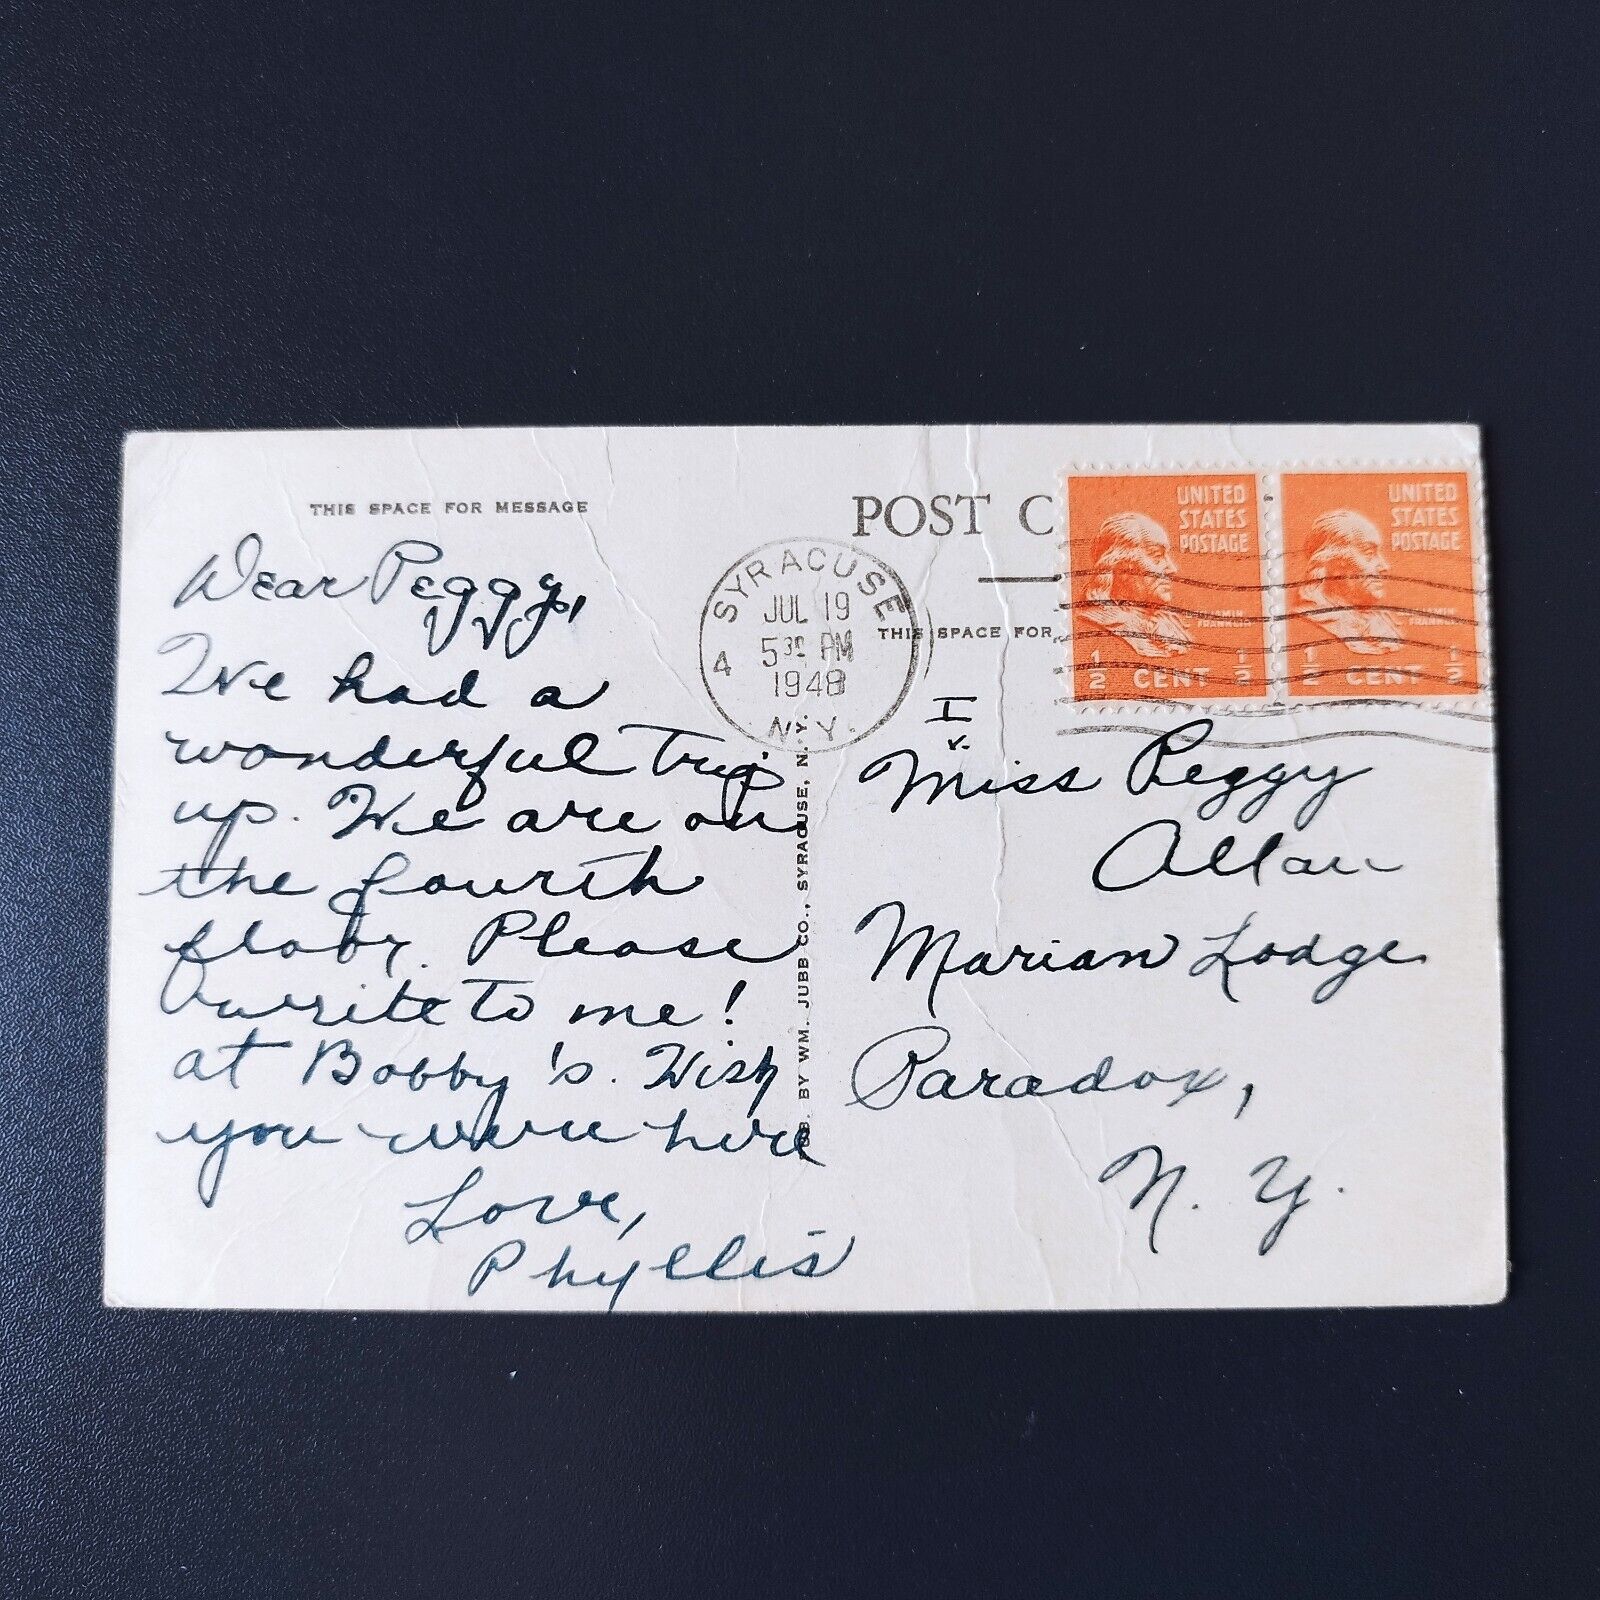 THIS SPACE FOR MESSAGE
Dear Peggy,
We had a
wonderful trip
up. We are on
the fourth
floor. Please
write to me!
at Bobby's. Wish
you were here
Love,
Phyllis
BY WM. JUBB CO., SYRACUSE, N.Y.
POST C
SYRACUSE
JUL 19
5 30 PM
1948
N.Y.
4
THIS SPACE FOR
UNITED
STATES
POSTAGE
BENJAMIN
FRANKLIN
1/2 CENT 1/2
UNITED
STATES
POSTAGE
BENJAMIN
FRANKLIN
1/2 CENT 1/2
Miss Peggy
Allan
Marian Lodge
Paradox,
N. Y.